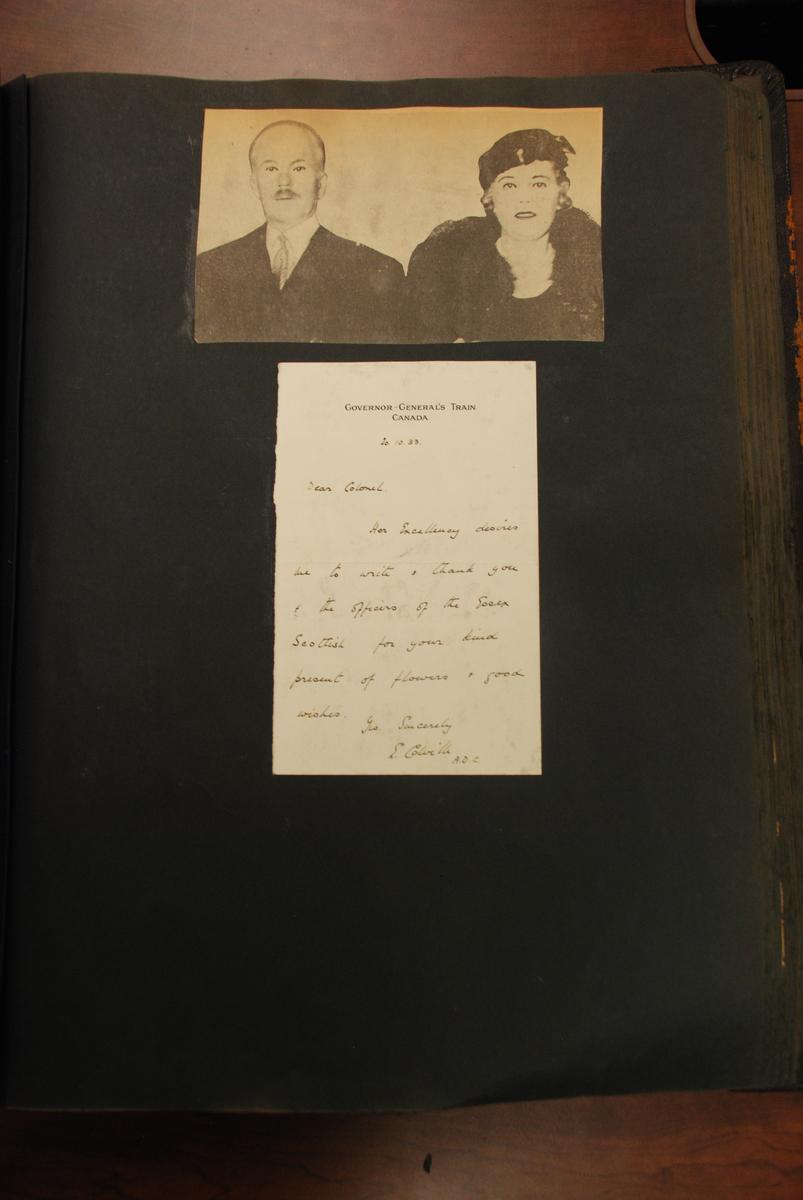 GOVERNOR-GENERAL'S TRAIN
CANADA
20.10.33.
Dear Colonel.
Her Excellency desires
me to write & thank you
& the officers of the Essex
Scottish for your kind
present of flowers & good
wishes.
Yrs. Sincerely
E. Colville
A.D.C.